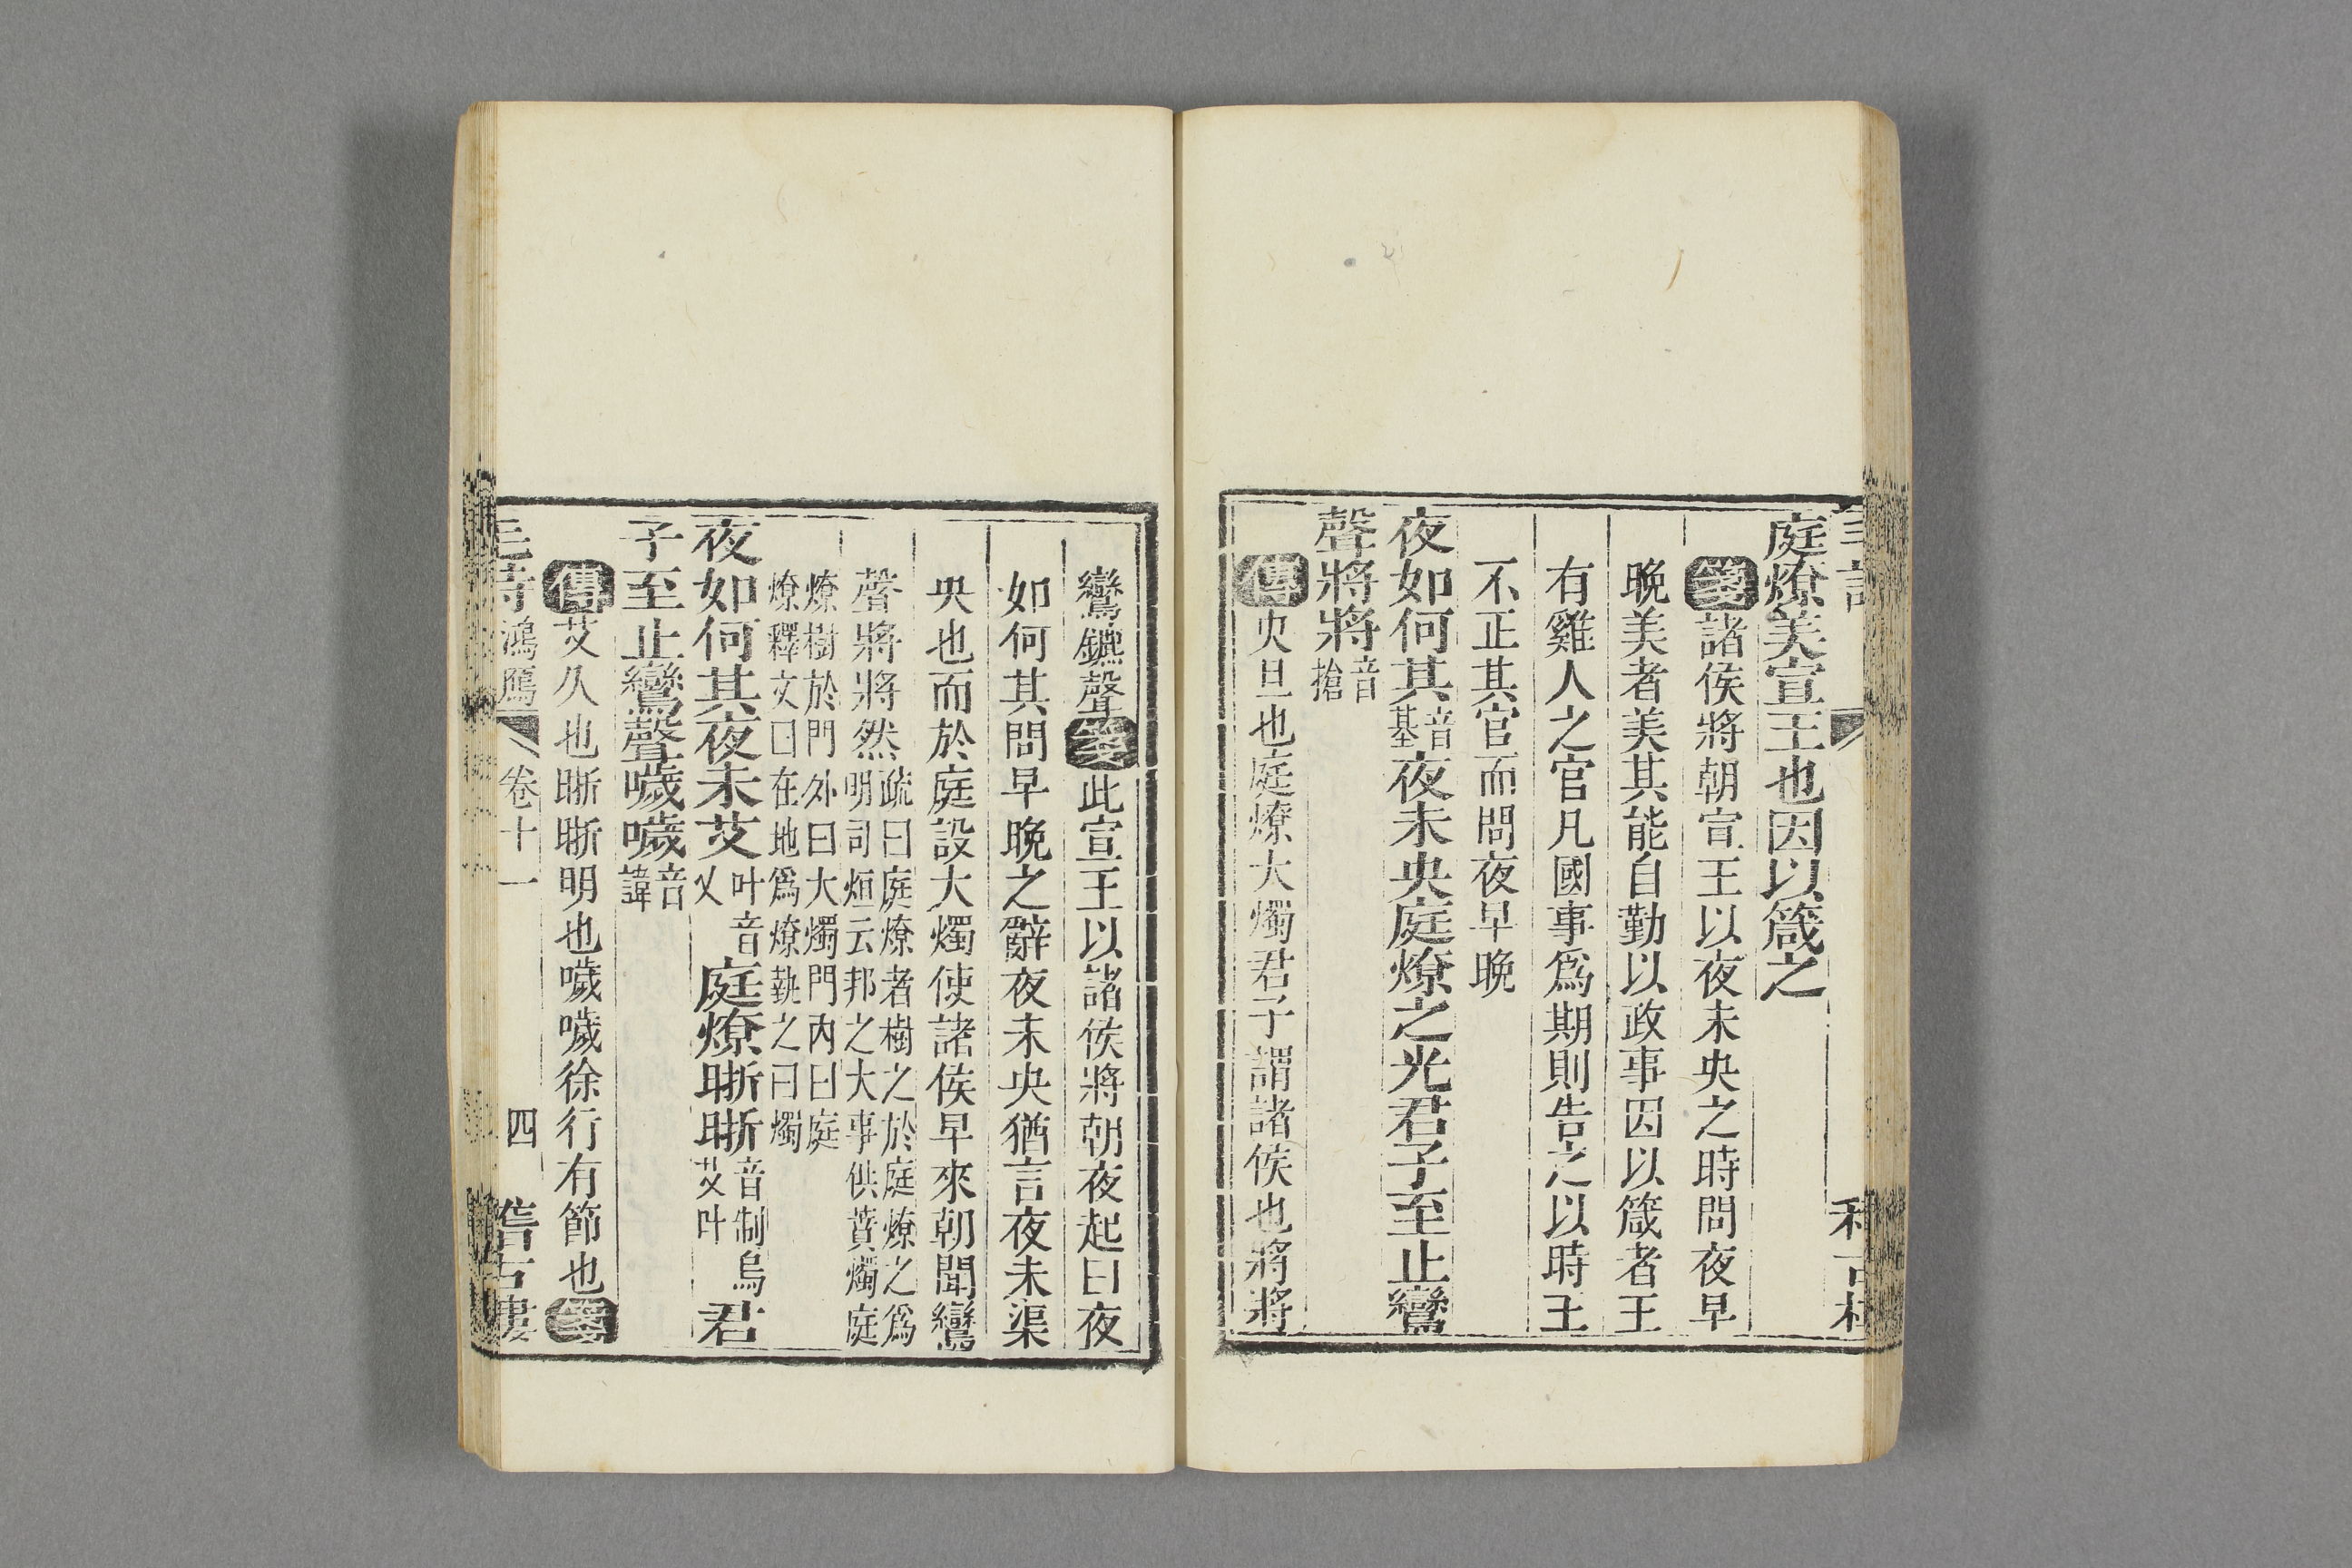 庭燎美宣王也因以箴之
箋諸侯將朝宣王以夜未央之時問夜早
晚美者美其能自勤以政事因以箴者王
有雞人之官凡國事爲期則告之以時王
不正其官而問夜早晚
夜如何其音基夜未央庭燎之光君子至止鸞
聲將將音搶
傳央旦也庭燎大燭君子謂諸侯也將將
鸞鑣聲箋此宣王以諸侯將朝夜起曰夜
如何其問早晚之辭夜未央猶言夜未渠
央也而於庭設大燭使諸侯早來朝聞鸞
聲將將然疏曰庭燎者樹之於庭燎之爲
明司烜云邦之大事供蕡燭庭
燎樹於門外曰大燭門內曰庭
燎釋文曰在地爲燎執之曰燭
夜如何其夜未艾叶音乂庭燎晣晣音制艾叶烏君
子至止鸞聲噦噦音諱
傳艾久也晣晣明也噦噦徐行有節也箋
毛詩鴻鴈 卷十一 四